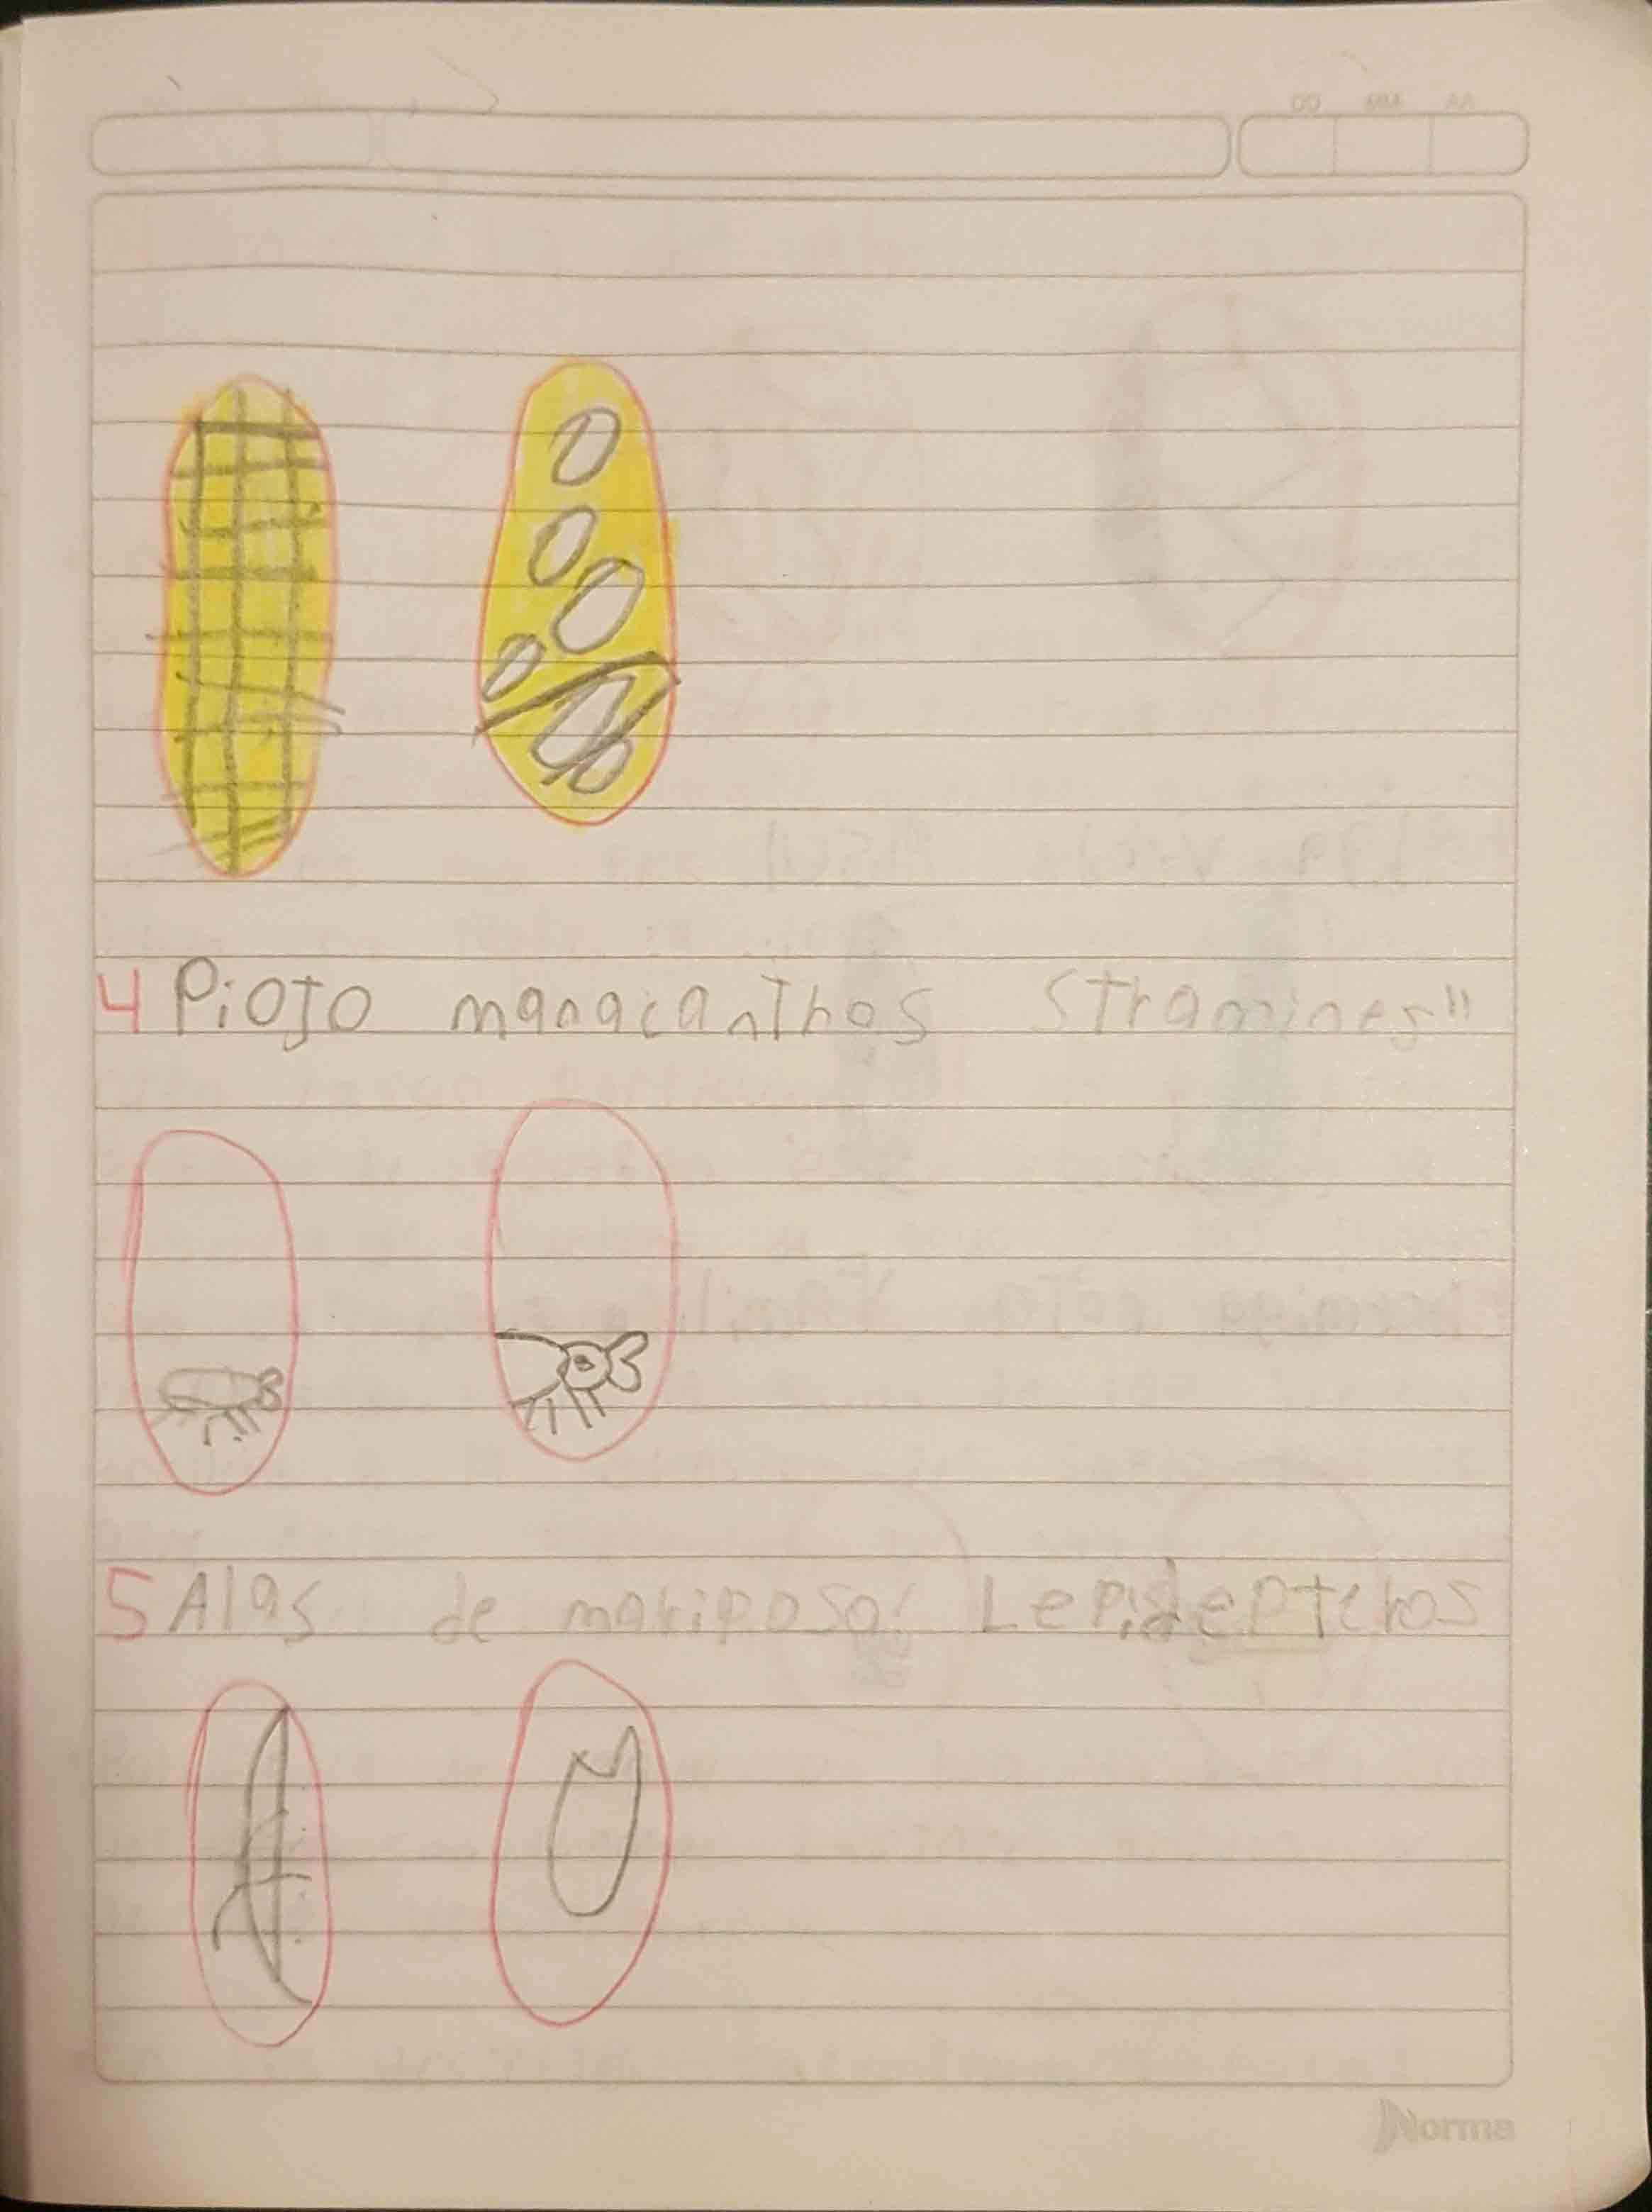 DD MM AA
4 Piojo manacanthos Stramines"
5 Alas de mariposa: Lepidepteros
Norma